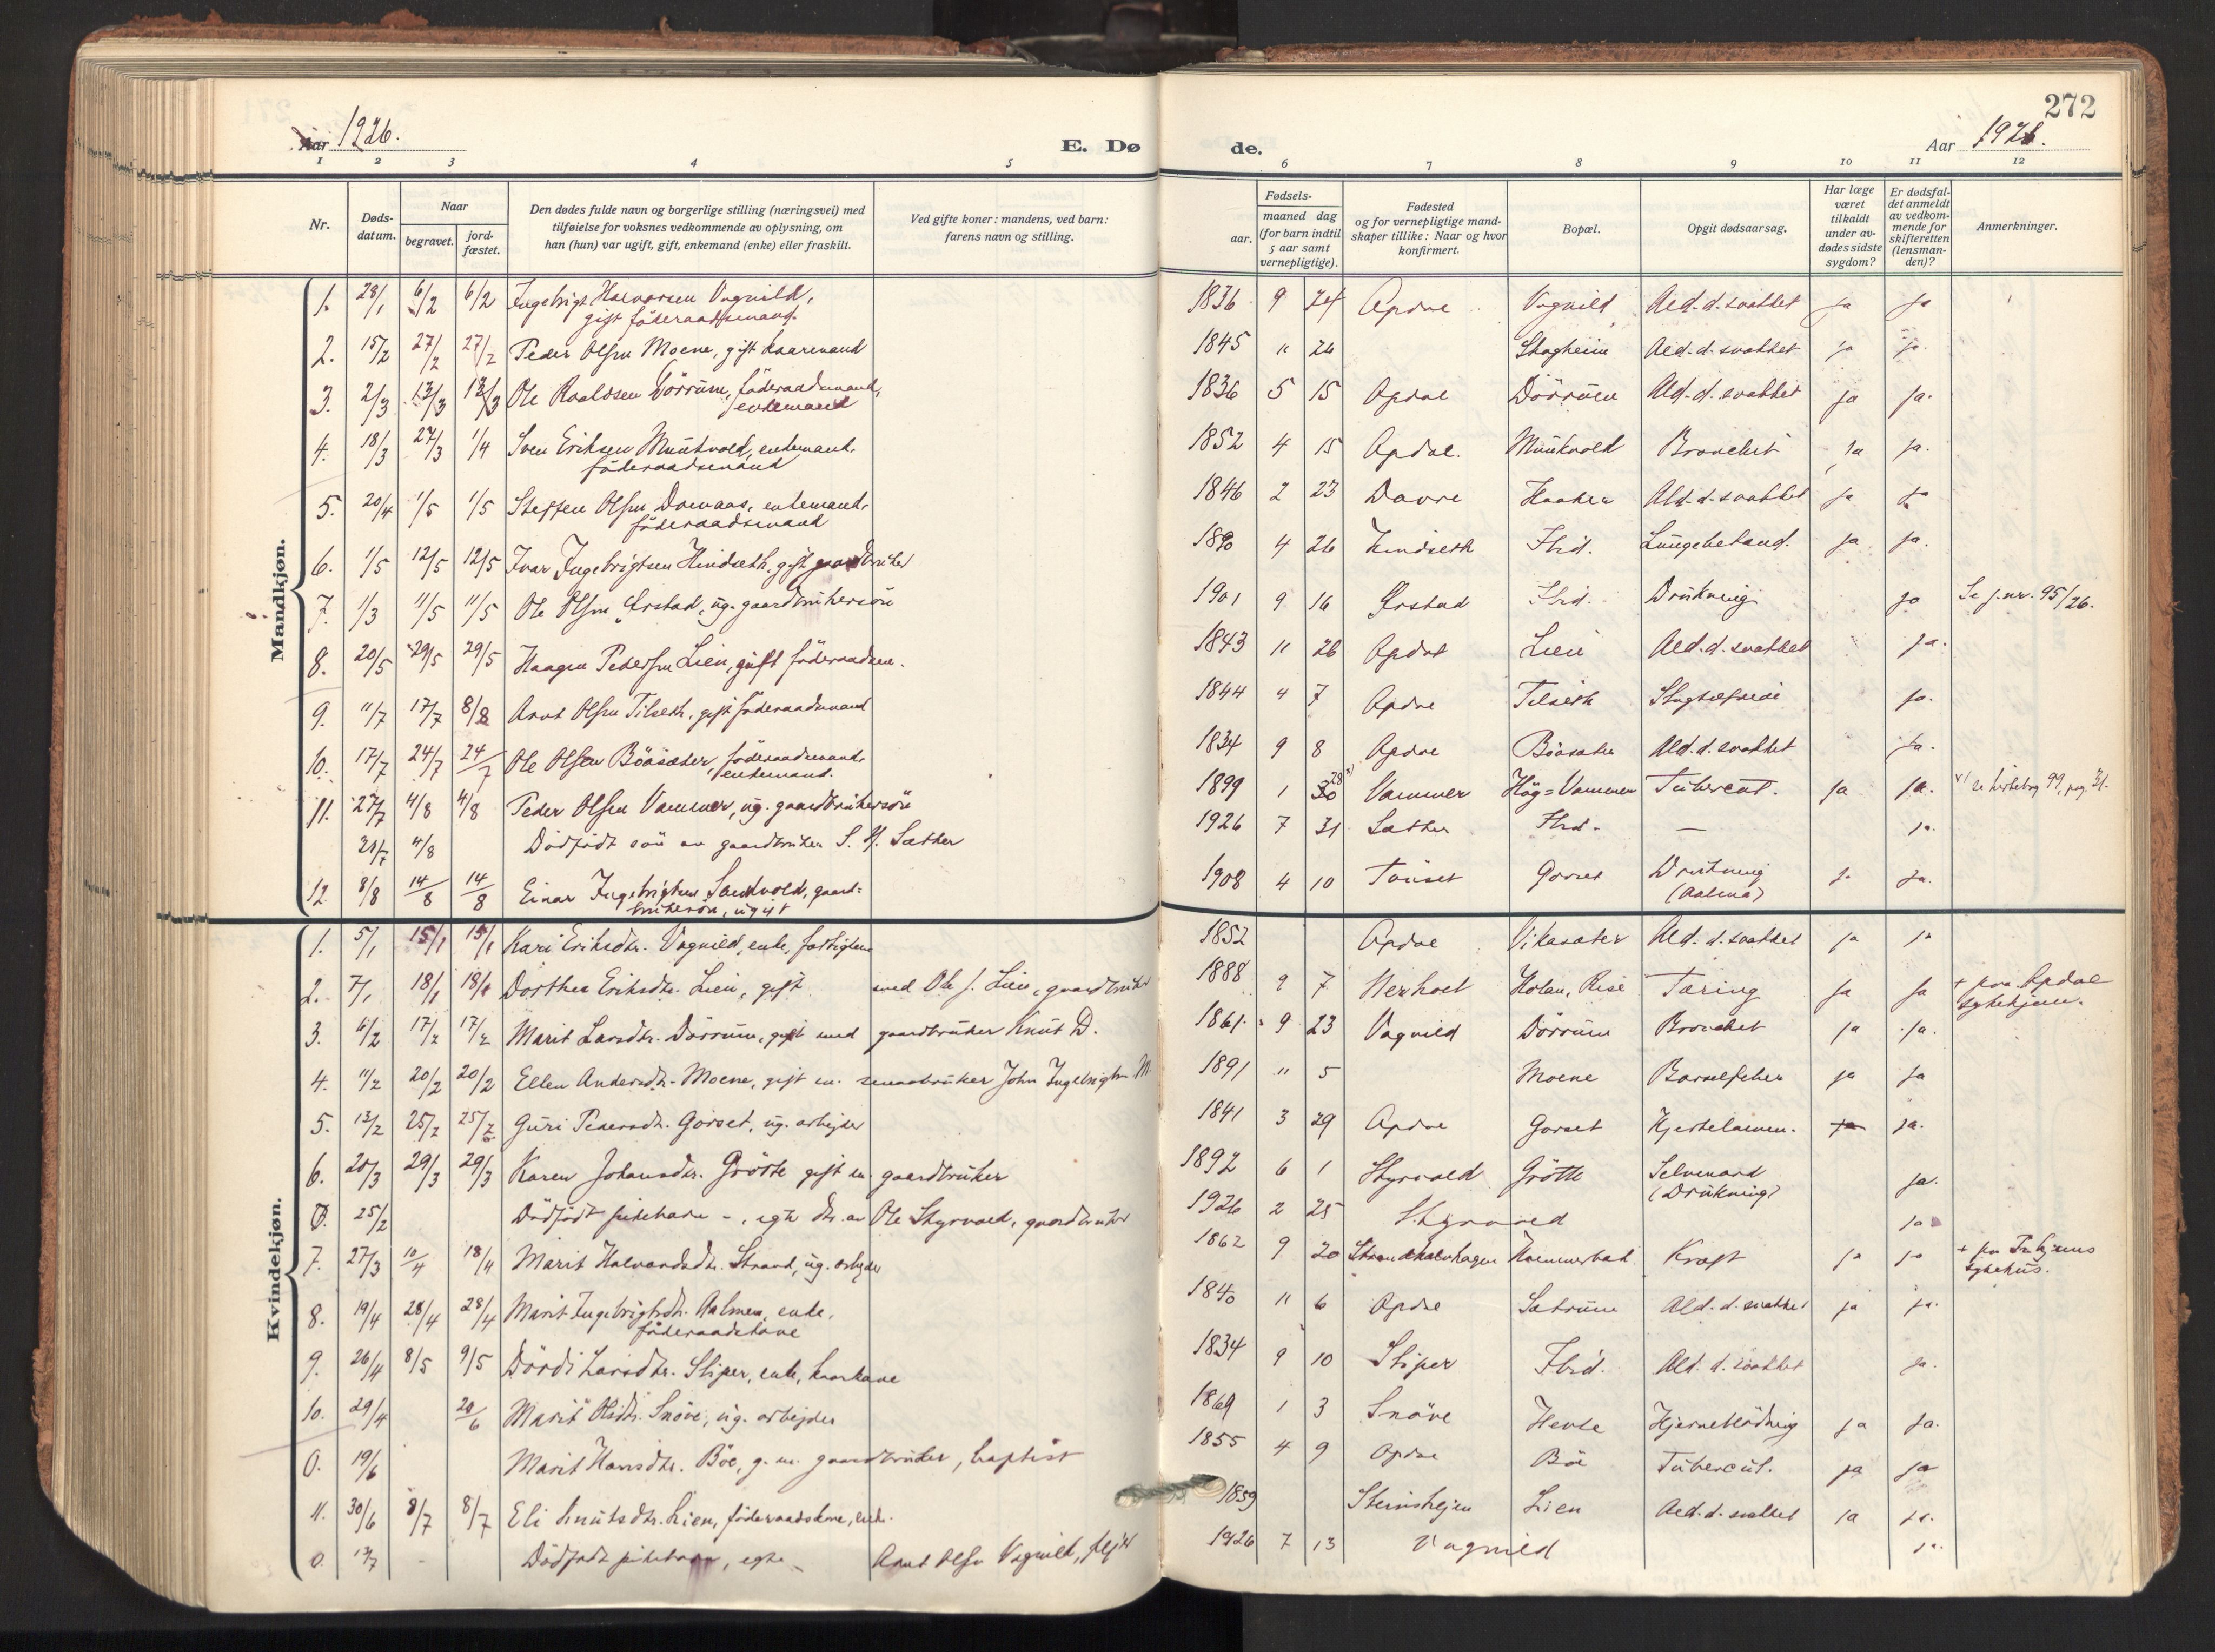 272
Aar 1926.
E. Dø
de.
Aar 1926.
1 2 3 4 5
6 7 8 9 10 11 12
Nr.
Døds-
datum.
Naar
begravet.
jord-
fæstet.
Den dødes fulde navn og borgerlige stilling (næringsvei) med
tilføielse for voksnes vedkommende av oplysning, om
han (hun) var ugift, gift, enkemand (enke) eller fraskilt.
Ved gifte koner: mandens, ved barn:
farens navn og stilling.
Fødsels-
aar.
maaned dag
(for barn indtil
5 aar samt
vernepligtige).
Fødested
og for vernepligtige mand-
skaper tillike: Naar og hvor
konfirmert.
Bopæl.
Opgit dødsaarsag.
Har læge
været
tilkaldt
under av-
dødes sidste
sygdom?
Er dødsfal-
det anmeldt
av vedkom-
mende for
skifteretten
(lensman-
den)?
Anmerkninger.
Mandkjøn.
1. 28/1 6/2 6/2 Ingebrigt Halvorsen Vognild, 1836 9 24 Opdal Vognild Ald. d. svakhet ja ja
gift föderaadsmand.
2. 15/2 27/2 27/2 Peder Olsen Moene, gift kaarmand 1845 11 26 Skogheim Ald. d. svakhet ja ja.
3. 2/3 13/3 13/3 Ole Roaldsen Dörrum, föderaadsmand, 1836 5 15 Opdal Dörrum Ald. d. svakhet ja ja.
enkemand
4. 18/3 27/3 1/4 Sven Eriksen Munkvold, enkemand, 1852 4 15 Opdal. Munkvold Bronchit ja ja.
föderaadsmand
5. 20/4 1/5 1/5 Steffen Olsen Domaas, enkemand, 1846 2 23 Dovre Haaker Ald. d. svakhet ja ja
föderaadsmand
6. 1/5 12/5 12/5 Ivar Ingebrigtsen Hindseth, gift gaardbruker 1890 4 26 Hindseth Ibid. Lungebetænd. ja ja.
7. 1/3 11/5 11/5 Ole Olsen Ørstad, ug. gaardbrukersön 1901 9 16 Ørstad Ibid. Drukning ja Se j.nr. 95/26.
8. 20/5 29/5 29/5 Haagen Pedersen Lien, gift föderaadsm. 1843 11 26 Opdal Lien Ald. d. svakhet ja.
9. 11/7 17/7 8/8 Arnt Olsen Tilseth, gift föderaadsmand 1844 4 7 Opdal Tilseth ja.
10. 17/7 24/7 24/7 Ole Olsen Böasæter, föderaadsmand, 1834 9 8 Opdal Böasæter Ald. d. svakhet ja.
enkemand.
11. 27/7 4/8 4/8 Peder Olsen Vammer, ug. gaardbrukersön 1899 1 30 28 x) Vammer Hög=Vammer Tubercul. ja ja. x) se kirkebog 99, pag. 31.
31/7 4/8 Dödfödt sön av gaardbruker S. H. Sæther 1926 7 31 Sæther Ibid. — ja.
12. 8/8 14/8 14/8 Einar Ingebrigtsen Sandvold, gaard= 1908 4 10 Tönset Gorset Drukning ja ja.
brukersön, ugift (Aalma)
Kvindekjøn.
1. 5/1 15/1 15/1 Kari Eriksdtr. Vognild, enke, fattiglem 1852 Opdal Vikasæter Ald. d. svakhet ja ja
2. 7/1 18/1 18/1 Dorthea Eriksdtr. Lien, gift med Ole J. Lien, gaardbruker 1888 9 7 Nerhoel Holan, Rise Tæring ja ja + paa Opdal
sykehjem.
3. 6/2 17/2 17/2 Marit Larsdtr. Dörrum, gift med gaardbruker Knut D. 1861. 9 23 Vognild Dörrum Bronchit ja ja.
4. 11/2 20/2 20/2 Ellen Andersdtr. Moene, gift m. smaabruker John Ingebrigtsen M. 1891 11 5 Moene Barselfeber ja ja
5. 13/2 25/2 25/2 Guri Pedersdtr. Gorset, ug. arbejder 1841 3 29 Opdal Gorset Hjertelammen. ja ja.
6. 20/3 29/3 29/3 Karen Johansdtr. Grötte gift m. gaardbruker 1892 6 1 Skyrvold Grötte Selvmord ja.
(Drukning)
0. 25/2 Dödfödt pikebarn –, egte dtr. av Ole Skyrvold, gaardbruker 1926 2 25 Skyrvold ja
7. 27/3 10/4 18/4 Marit Halvardsdtr. Strand, ug. arbejder 1862 9 20 Hammerbak Kræft ja ja + paa Trhjems
sykehus.
8. 19/4 28/4 28/4 Marit Ingebrigtsdtr. Aalmen, enke, 1840 11 6 Opdal Sætrum Ald. d. svakhet ja ja.
föderaadskone
9. 26/4 8/5 9/5 Dördi Larsdtr. Sliper, enke, kaarkone 1834 9 10 Sliper Ibid. Ald. d. svakhet ja.
10. 29/4 20/6 Marit Olsdtr. Snöve, ug. arbejder 1869 1 3 Snöve Hevle Hjerneblödning ja ja.
0. 19/6 Marit Hansdtr. Böe, g. m. gaardbruker, baptist 1855 4 9 Opdal Böe Tubercul. ja ja
11. 30/6 8/7 8/7 Eli Knutsdtr. Lien, föderaadskone, enke. 1859 Lien Ald. d. svakhet ja ja.
0. 13/7 – Dödfödt pikebarn, egte – Arnt Olsen Vognild, 1926 7 13 Vognild ja.